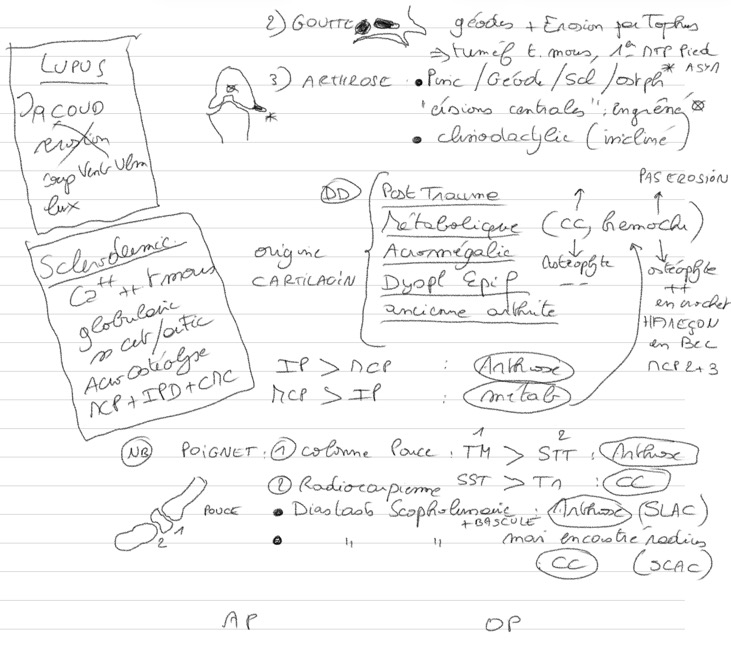 2) GOUTTE géodes + Erosion par Tophus
⇒ tuméf t. mous, 1e MTP Pied
* ASYM
3) ARTHROSE • Pinc / Géode / Scl / ostph
"érosions centrales" : engrêné
• clinodactylie (incliné)
*
LUPUS
JACOUD
érosion
Vent Ulm
lux
Sclérodermie
Ca++ ++ t mous
globulaire
Acro ostéolyse
MCP + IPD + CMC
DD
origine
CARTILAGIN
Post Trauma
Métabolique (CC, hemochr)
Acromégalie
Dyspl Epiph
ancienne arthrite
PAS EROSION
Ostéophyte
--
ostéophyte
++
en crochet
HAMEÇON
en BEC
MCP 2+3
IP > MCP : Arthrose
MCP > IP : métab
NB POIGNET : 1 colonne Pouce : TM > STT : Arthrose
1 2
SST > TM : CC
2 Radiocarpienne
• Diastasis Scapholunaire : Arthrose (SLAC)
+ BASCULE
• " " mais encastré radius
CC (SCAC)
POUCE
1
2
AP OP